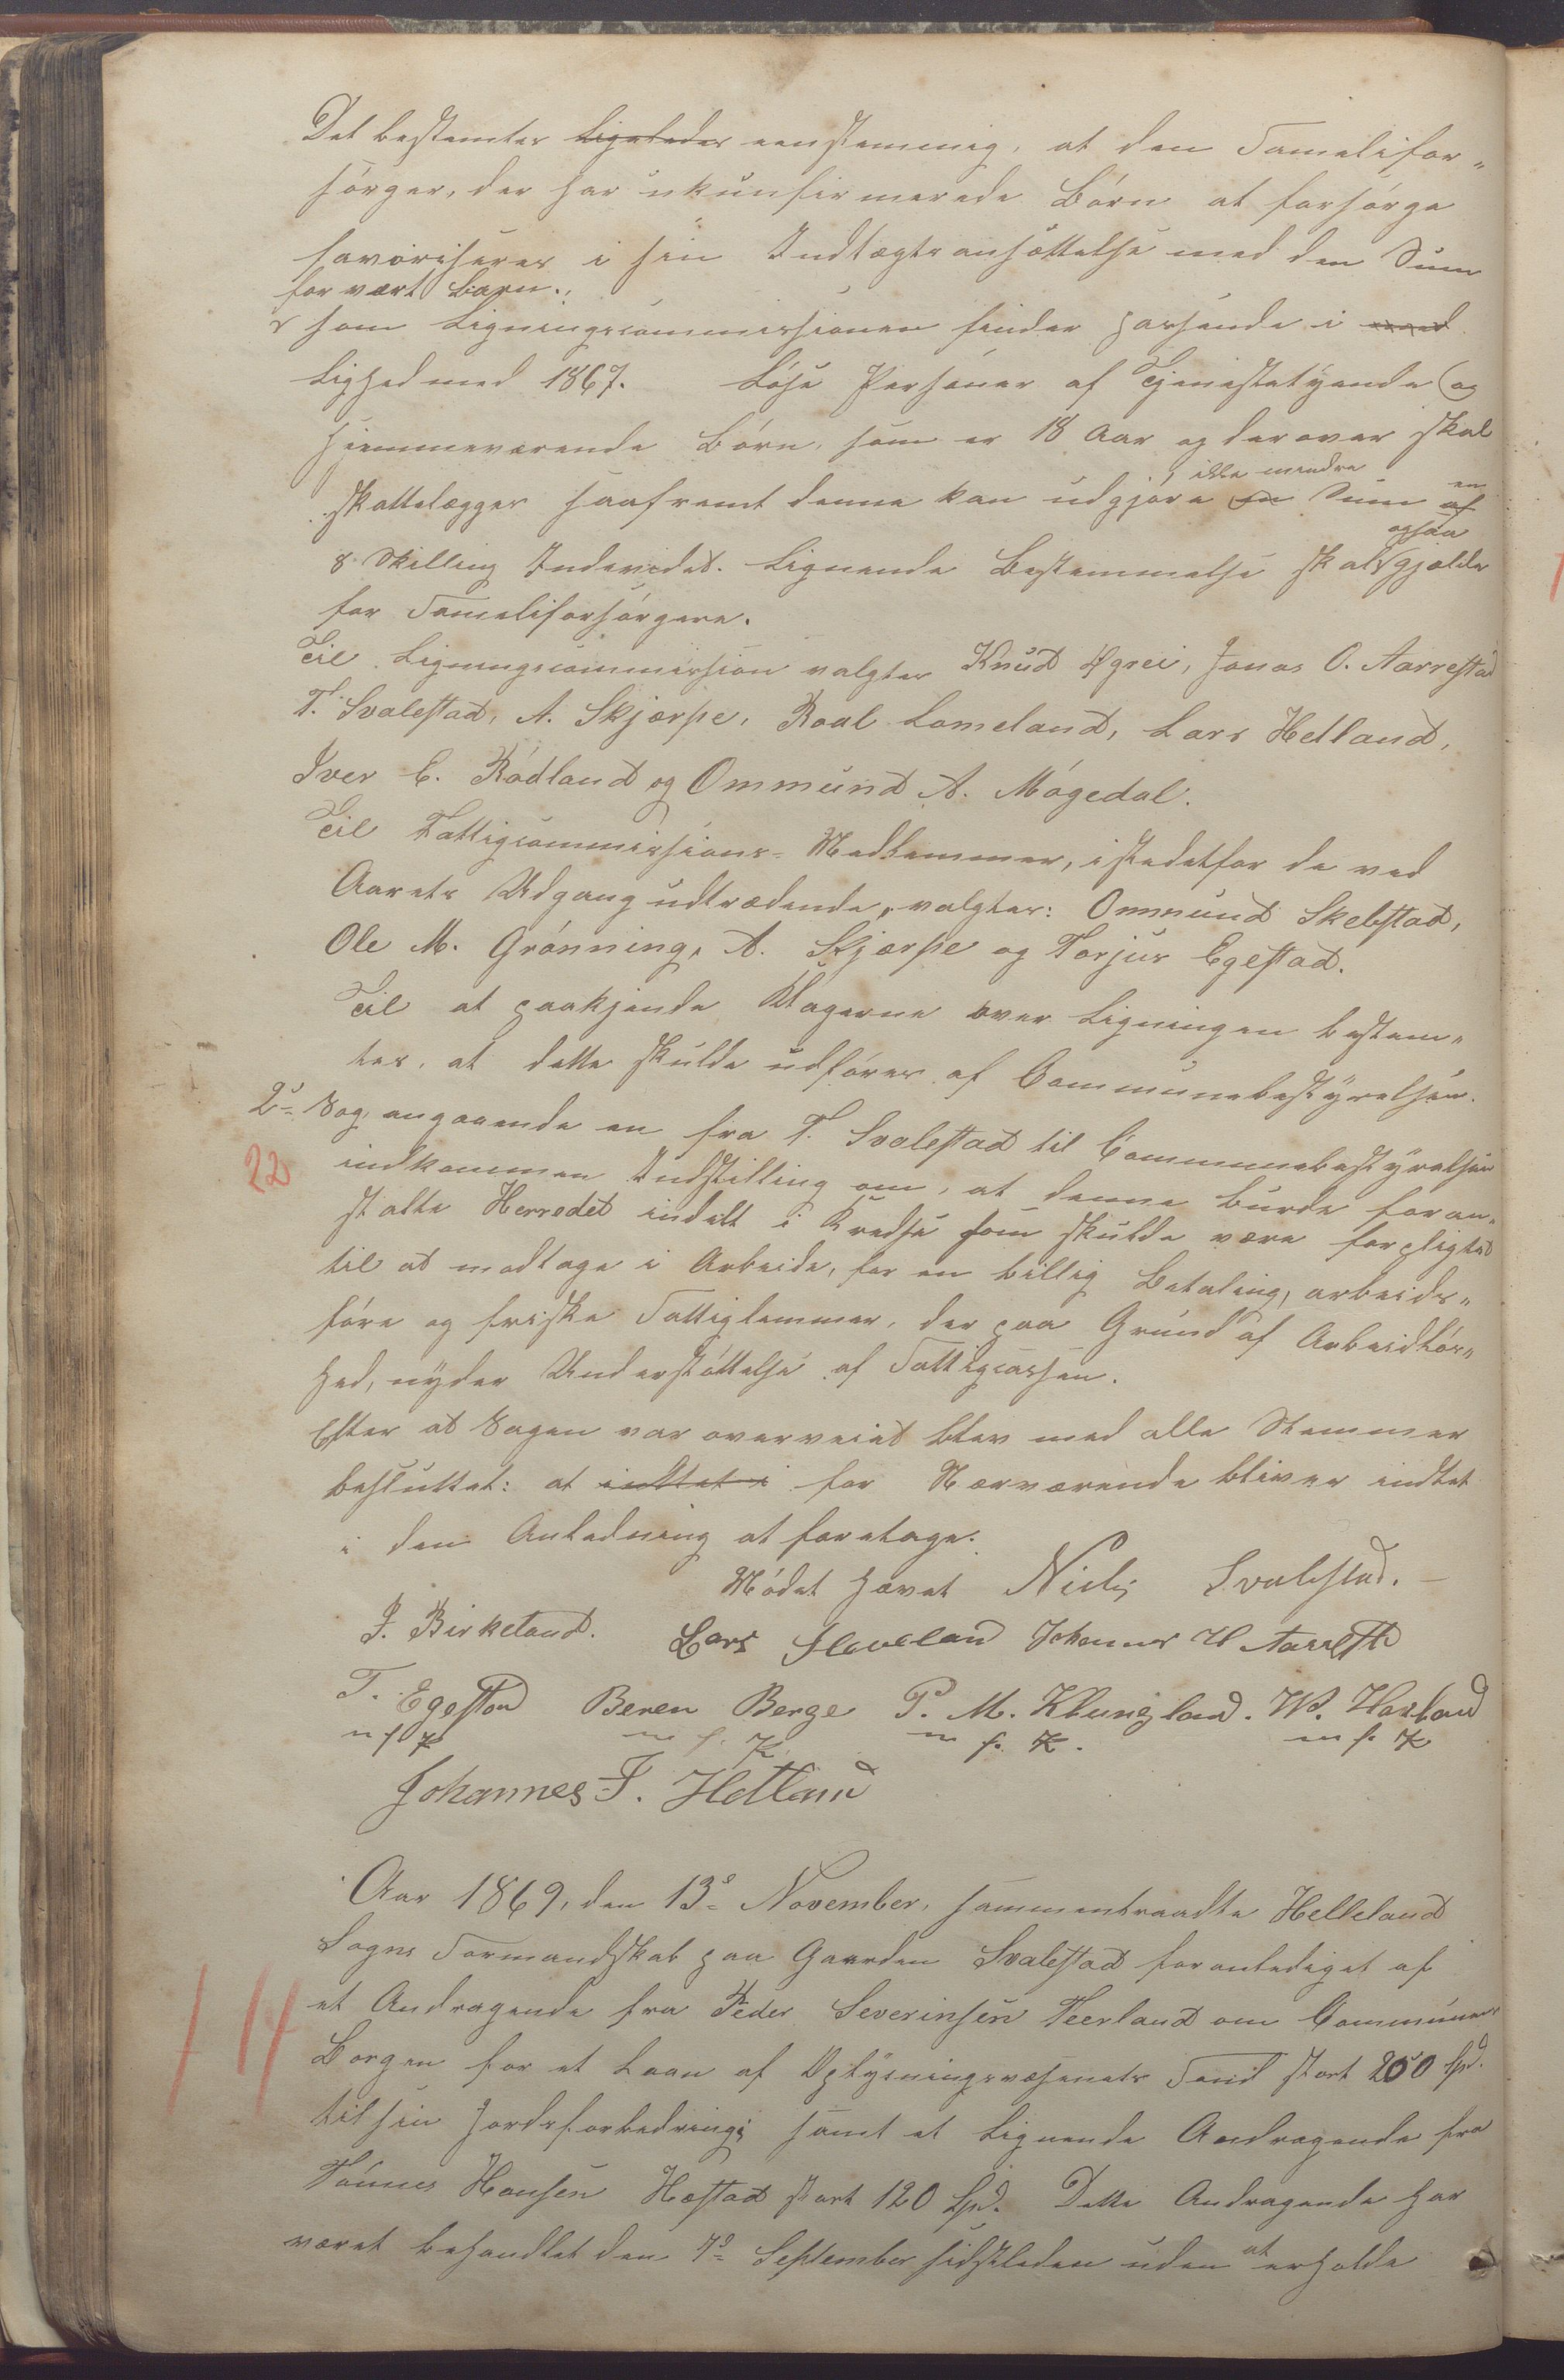 Det bestemtes Ligeledes eenstemmig, at den Famelifor-
sörger, der har ukunfirmerede Börn at forsörge
favoriseres i sin Indtægtsansættelse med den Sum
for vært Barn.
som Ligningscommissionen finder passende i
Lighed med 1867. Löse Personer af Tjenestetyende (og
hjemmeværende Börn, som er 18 Aar og derover skal
ikke mindre en
skattelægges saafremt denne kan udgjöre en Sum af
ogsaa
8 Skilling Indevidet. Lignende Bestemmelse skal gjælde
for Fameliforsörgere.
Til Ligningscommission valgtes Knud Øgrei, Jonas O. Aarrestad
T. Svalestad, A. Skjærpe, Roal Lomeland, Lars Helland,
Iver E. Rödland og Ommund A. Mögedal.
Til Fattigcommissions-Medlemmer, istedetfor de ved
Aarets Udgang udtrædende, valgtes: Ommund Skebstad,
Ole M. Grönning, A. Skjærpe og Torjus Egestad.
Til at paakjende Klagerne over Ligningen bestem-
tes, at dette skulde udföres af Communebestyrelsen.
2o Sag, angaaende en fra T. Svalestad til Communebestyrelsen
22 indkommen Indstilling om, at denne burde foran-
stalte Herredet indelt i Kredse som skulde være forpligtet
til at modtage i Arbeide, for en billig Betaling, arbeids-
före og friske Fattiglemmer, der paa Grund af Arbeidlös-
hed, nyder Understöttelse af Fattigcassen.
Efter at Sagen var overveiet blev med alle Stemmer
besluttet: at indtet i for Nærværende bliver indtet
i den Anledning at foretage.
Mödet hævet Niels Svalestad.
J. Birkeland. Lars Slevelan Johannes H Aarrestd
T. Egestad Beren Berge P. M. Klungland. W. Hovland
m f P m f. P. m f. P. m f. P
Johannes J. Hetland
Aar 1869, den 13de November, sammentraadte Helleland
Sogns Formandskab paa Gaarden Svalestad foranlediget af
114 et Andragende fra Peder Severinsen Teerland om Communens
Borgen for et Laan af Oplysningsvæsenets Fond stort 200 Spd.
til sin Jordsforbedring; samt et Lignende Andragende fra
Tönnes Hansen Hæstad stort 120 Spd. Dette Andragende har
været behandlet den 7de September sidstleden uden at erholde